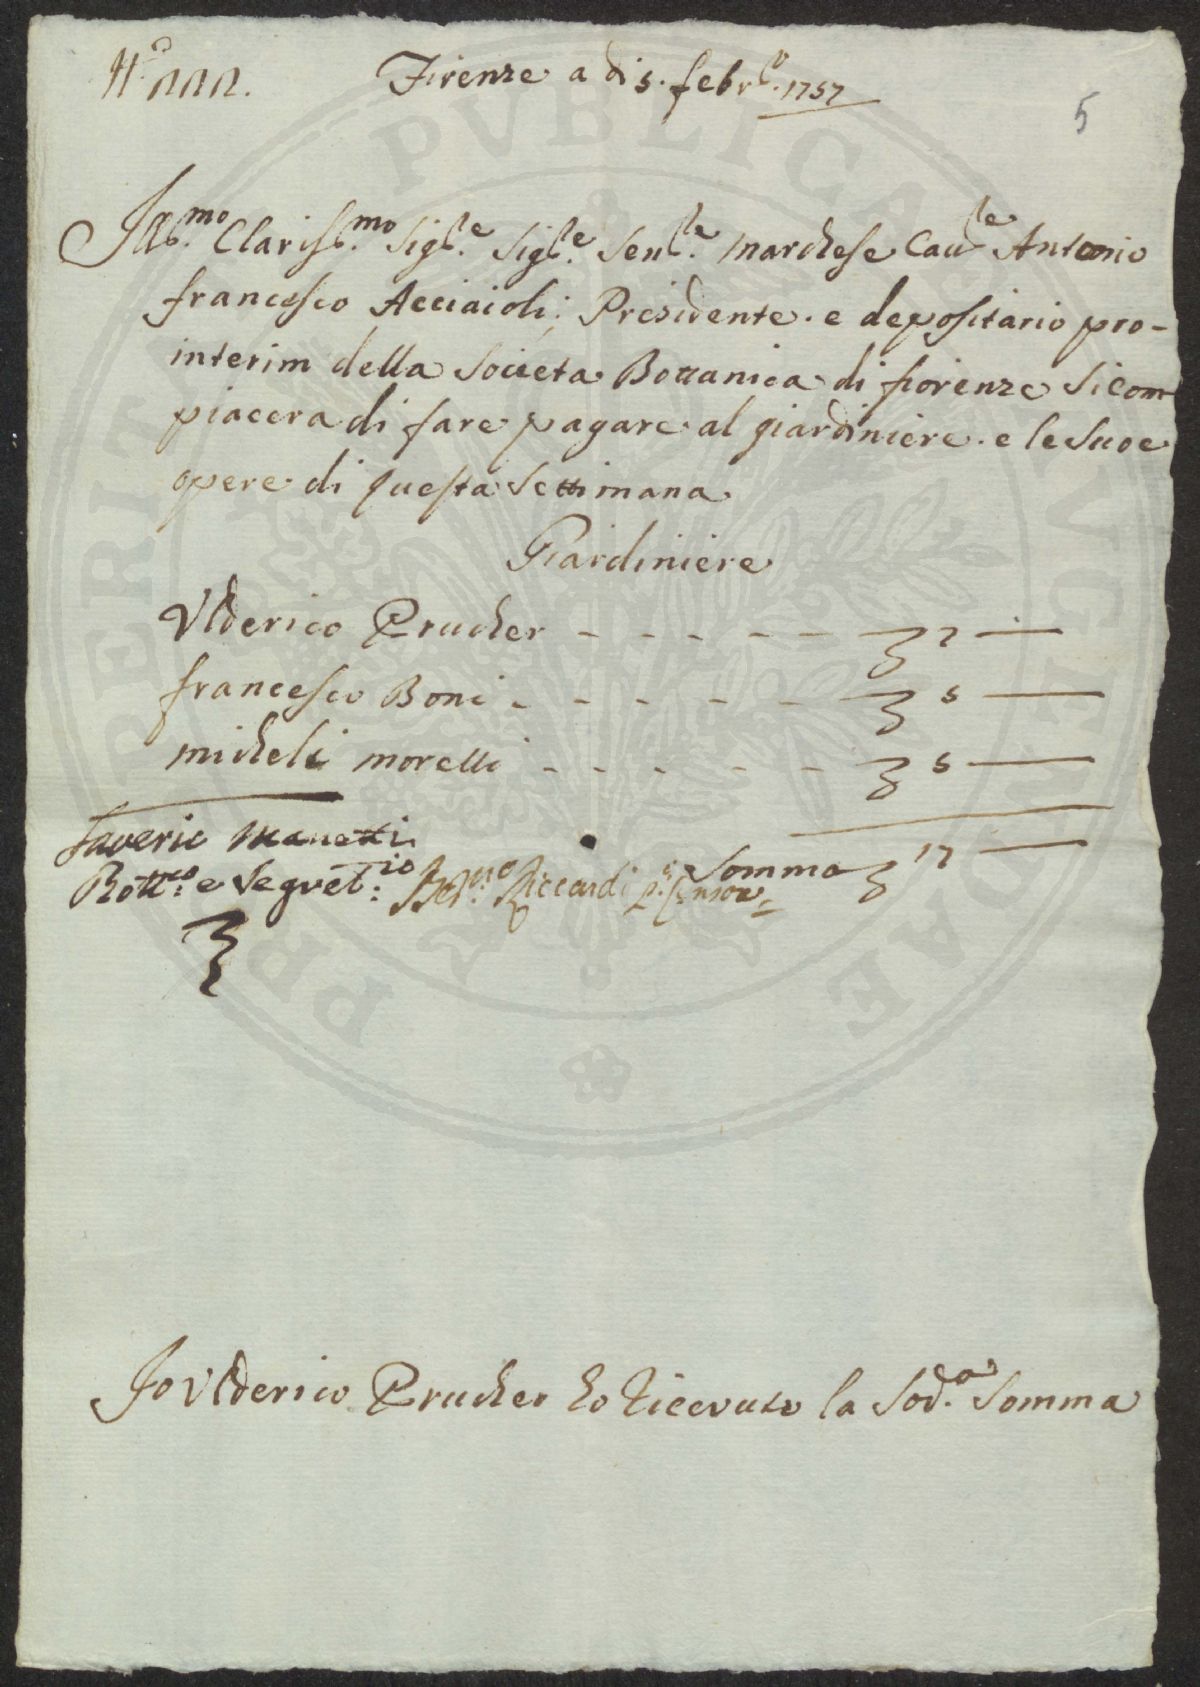 Firenze a di 5. febr.º 1757
5
Ill.mo Clariss.mo Sig.re Sig.re Sen.re Marchese Cau.re Antonio
francesco Acciaioli; Presidente. e depositario pro-
interim della Societa Bottanica di fiorenze Si com
piacera di fare pagare al giardiniere. e le Suoe
opere di questa Settimana
Giardiniere
Ulderico Prucher - - - - - 7 —
francesco Boni - - - - - 5 —
micheli morelli - - - - - 5 —
Saverio Manetti
Somma 17 —
Bott.co e Segret.io
Riccardi
Jo Ulderico Prucher ho Ricevuto la Sod.a Somma
PUBLICAE